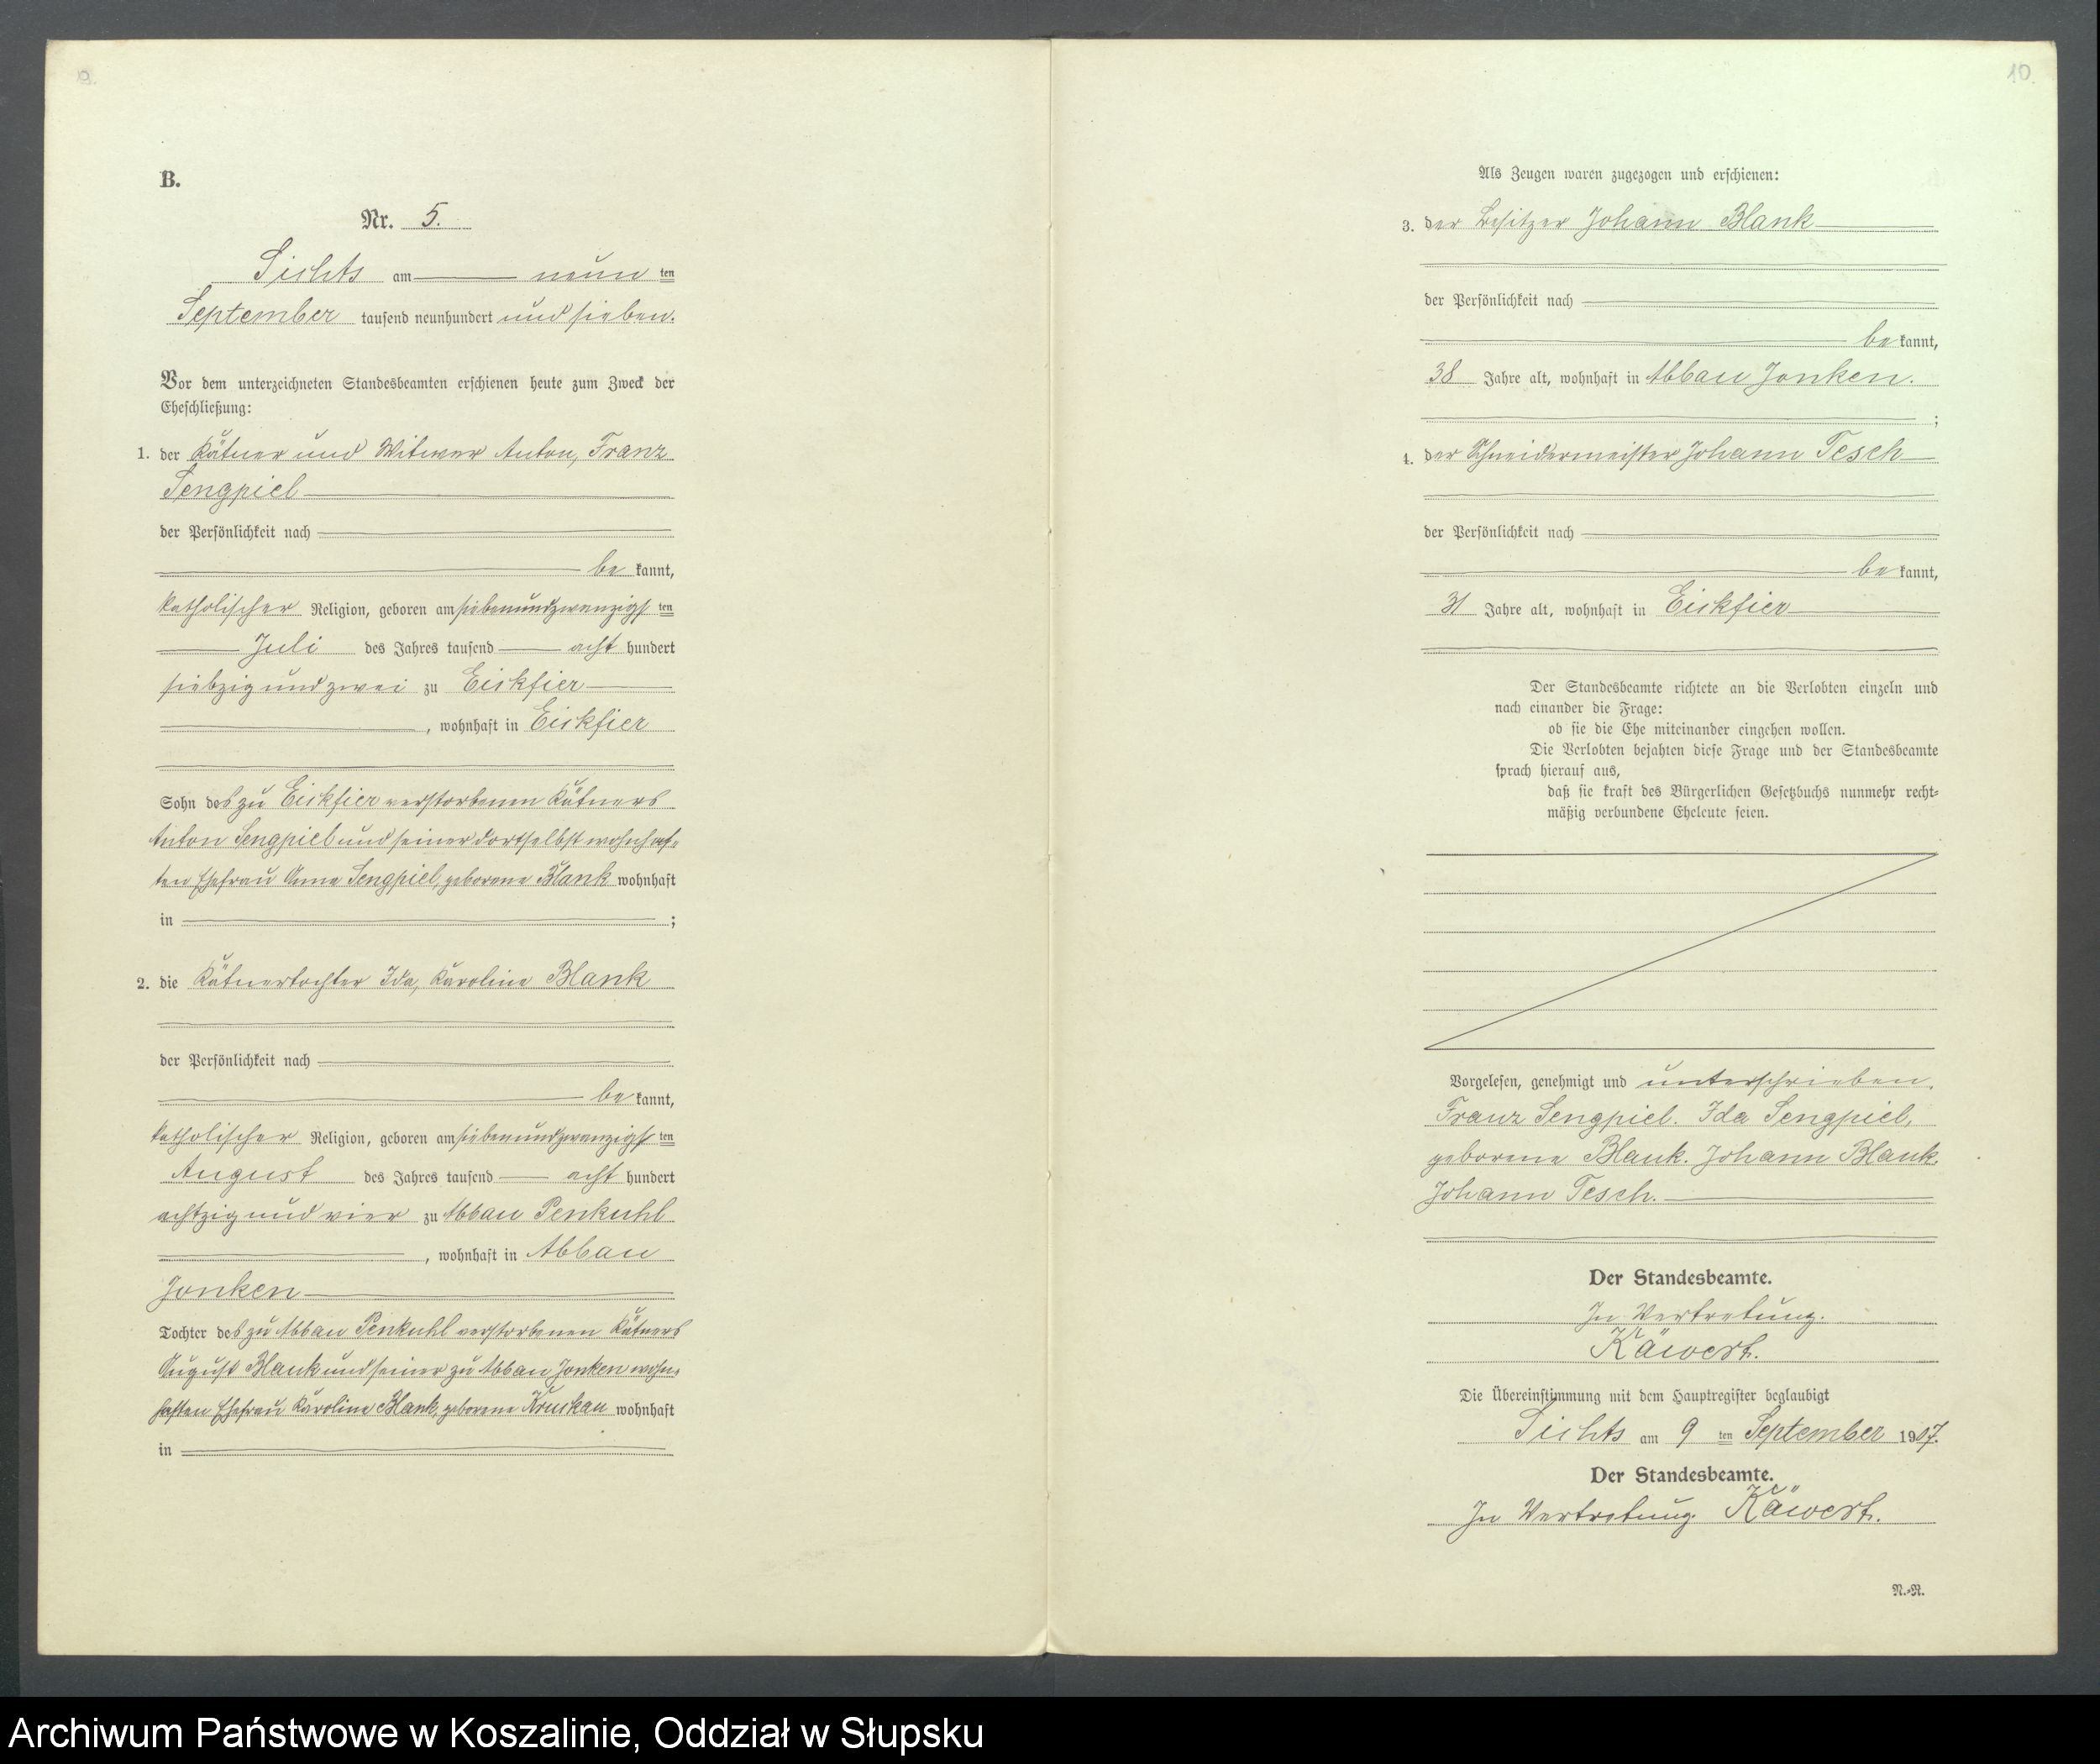 9.
B.
Nr. 5.
Sichts am neun ten
September tausend neunhundert und sieben.
Vor dem unterzeichneten Standesbeamten erschienen heute zum Zweck der
Eheschließung:
1. der Kätner und Witwer Anton, Franz
Sengpiel
der Persönlichkeit nach
be kannt,
katholischer Religion, geboren am siebenundzwanzigs ten
Juli des Jahres tausend acht hundert
siebzig und zwei zu Eickfier
, wohnhaft in Eickfier
Sohn des zu Eickfier verstorbenen Kätners
Anton Sengpiel und seiner dortselbst wohnhaf-
ten Ehefrau Anna Sengpiel, geborene Blank wohnhaft
in ;
2. die Kätnertochter Ida, Karoline Blank
der Persönlichkeit nach
be kannt,
katholischer Religion, geboren am siebenundzwanzigs ten
August des Jahres tausend acht hundert
achtzig und vier zu Abbau Penkuhl
, wohnhaft in Abbau
Jonken
Tochter des zu Abbau Penkuhl verstorbenen Kätners
August Blank und seiner zu Abbau Jonken wohn-
haften Ehefrau Karoline Blank, geborene Kruskau wohnhaft
in
10.
Als Zeugen waren zugezogen und erschienen:
3. der Besitzer Johann Blank
der Persönlichkeit nach
be kannt,
38 Jahre alt, wohnhaft in Abbau Jonken.
;
4. der Schneidermeister Johann Tesch
der Persönlichkeit nach
be kannt,
31 Jahre alt, wohnhaft in Eickfier
Der Standesbeamte richtete an die Verlobten einzeln und
nach einander die Frage:
ob sie die Ehe miteinander eingehen wollen.
Die Verlobten bejahten diese Frage und der Standesbeamte
sprach hierauf aus,
daß sie kraft des Bürgerlichen Gesetzbuchs nunmehr recht-
mäßig verbundene Eheleute seien.
Vorgelesen, genehmigt und unterschrieben.
Franz Sengpiel. Ida Sengpiel,
geborene Blank. Johann Blank.
Johann Tesch.
Der Standesbeamte.
In Vertretung.
Käwert.
Die Übereinstimmung mit dem Hauptregister beglaubigt
Sichts am 9 ten September 1907.
Der Standesbeamte.
In Vertretung Käwert.
N.-N.
Archiwum Państwowe w Koszalinie, Oddział w Słupsku